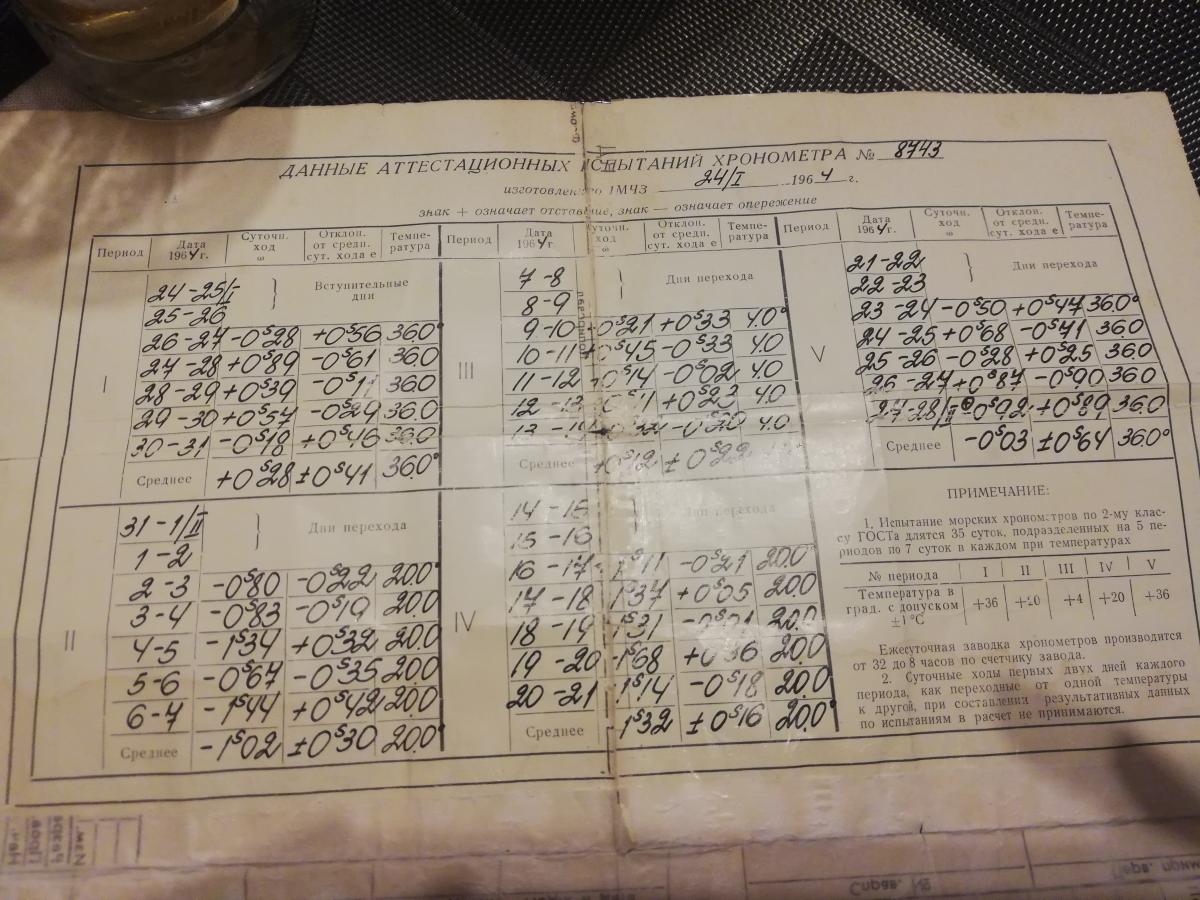 ДАННЫЕ АТТЕСТАЦИОННЫХ ИСПЫТАНИЙ ХРОНОМЕТРА № 8743
изготовленного 1МЧЗ 24/I 1964 г.
знак + означает отставание, знак — означает опережение
Период Дата 1964 г. Суточн. ход ω Отклон. от средн. сут. хода е Темпе-ратура
I
24-25/I Вступительные
25-26 дни
26-27 -0ˢ28 +0ˢ56 36.0°
27-28 +0ˢ89 -0ˢ61 36.0
28-29 +0ˢ39 -0ˢ11 36.0
29-30 +0ˢ57 -0ˢ29 36.0
30-31 -0ˢ18 +0ˢ46 36.0
Среднее +0ˢ28 ±0ˢ41 36.0°
II
31-1/II Дни перехода
1-2
2-3 -0ˢ80 -0ˢ22 20.0°
3-4 -0ˢ83 -0ˢ19 20.0
4-5 -1ˢ34 +0ˢ32 20.0
5-6 -0ˢ67 -0ˢ35 20.0
6-7 -1ˢ44 +0ˢ42 20.0
Среднее -1ˢ02 ±0ˢ30 20.0°
Период Дата 1964 г. Суточн. ход ω Отклон. от средн. сут. хода е Темпе-ратура
III
7-8 Дни перехода
8-9
9-10 0ˢ21 +0ˢ33 4.0°
10-11 0ˢ45 -0ˢ33 4.0
11-12 0ˢ14 -0ˢ02 4.0
12-13 +0ˢ23 4.0
4.0
Среднее +0ˢ12 ±0ˢ22
IV
14-15 Дни перехода
15-16
16-17 1ˢ11 -0ˢ21 20.0°
17-18 1ˢ37 +0ˢ05 20.0
18-19 1ˢ31 -0ˢ01 20.0
19-20 -1ˢ68 +0ˢ36 20.0
20-21 1ˢ14 -0ˢ18 20.0
Среднее 1ˢ32 ±0ˢ16 20.0°
Период Дата 1964 г. Суточн. ход ω Отклон. от средн. сут. хода е Темпе-ратура
V
21-22 Дни перехода
22-23
23-24 -0ˢ50 +0ˢ47 36.0°
24-25 +0ˢ68 -0ˢ71 36.0
25-26 -0ˢ28 +0ˢ25 36.0
26-27 +0ˢ87 -0ˢ90 36.0
27-28/II -0ˢ92 +0ˢ89 36.0
Среднее -0ˢ03 ±0ˢ64 36.0°
ПРИМЕЧАНИЕ:
1. Испытание морских хронометров по 2-му клас-
су ГОСТа длятся 35 суток, подразделенных на 5 пе-
риодов по 7 суток в каждом при температурах
№ периода I II III IV V
Температура в
град. с допуском +36 +20 +4 +20 +36
±1°С
Ежесуточная заводка хронометров производится
от 32 до 8 часов по счетчику завода.
2. Суточные ходы первых двух дней каждого
периода, как переходные от одной температуры
к другой, при составлении результативных данных
по испытаниям в расчет не принимаются.
Справ. №
Перв. прим